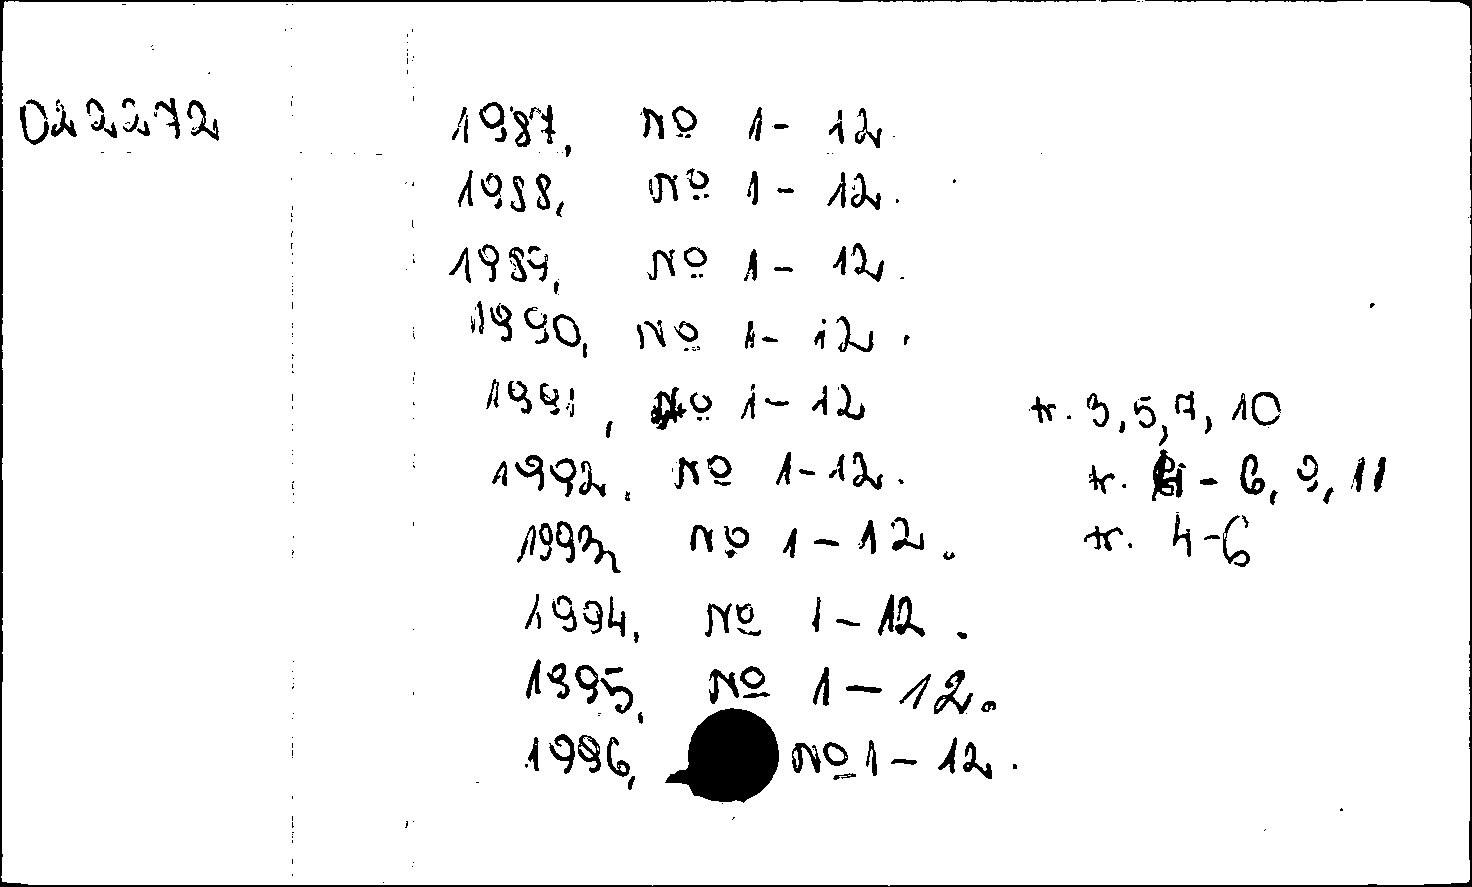 022272 1987, № 1 - 12.
1988, № 1 - 12.
1989, № 1 - 12.
1990, № 1 - 12.
1991, № 1 - 12 tr. 3, 5, 7, 10
1992. № 1 - 12. tr. - 6, 9, 11
1993, № 1 - 12. tr. 4-6
1994, № 1 - 12.
1995, № 1 - 12.
1996, № 1 - 12.